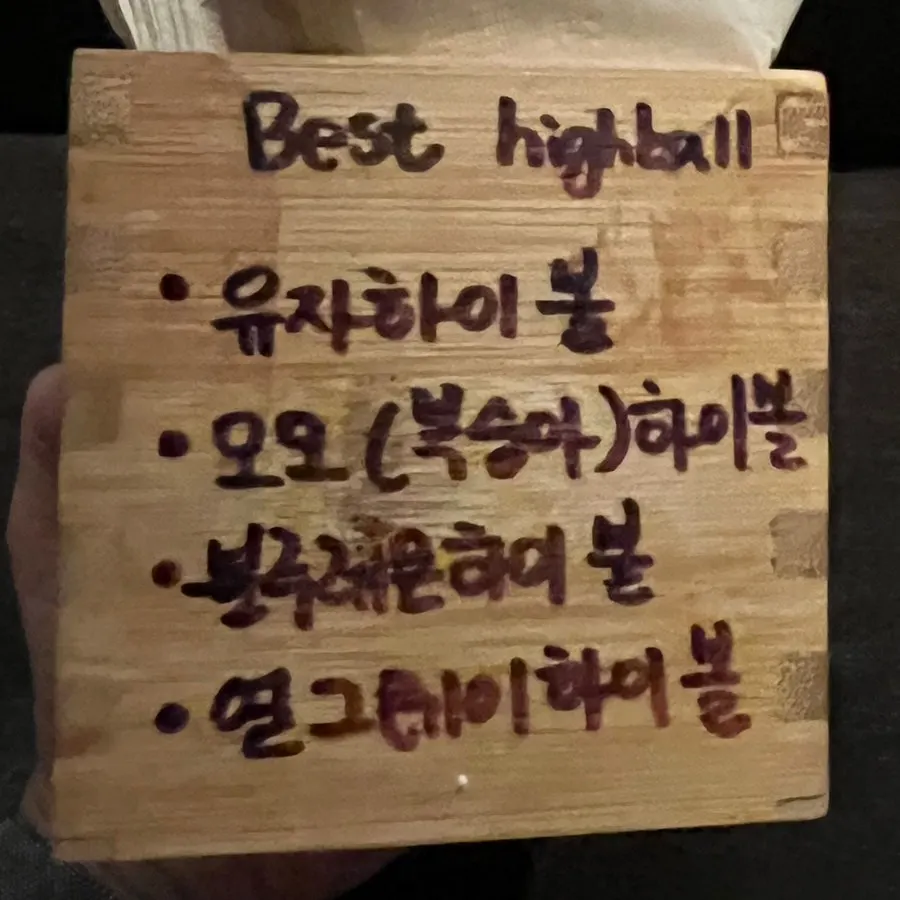 Best highball
• 유자하이볼
• 모모(복숭아)하이볼
• 블루레몬하이볼
• 얼그레이하이볼